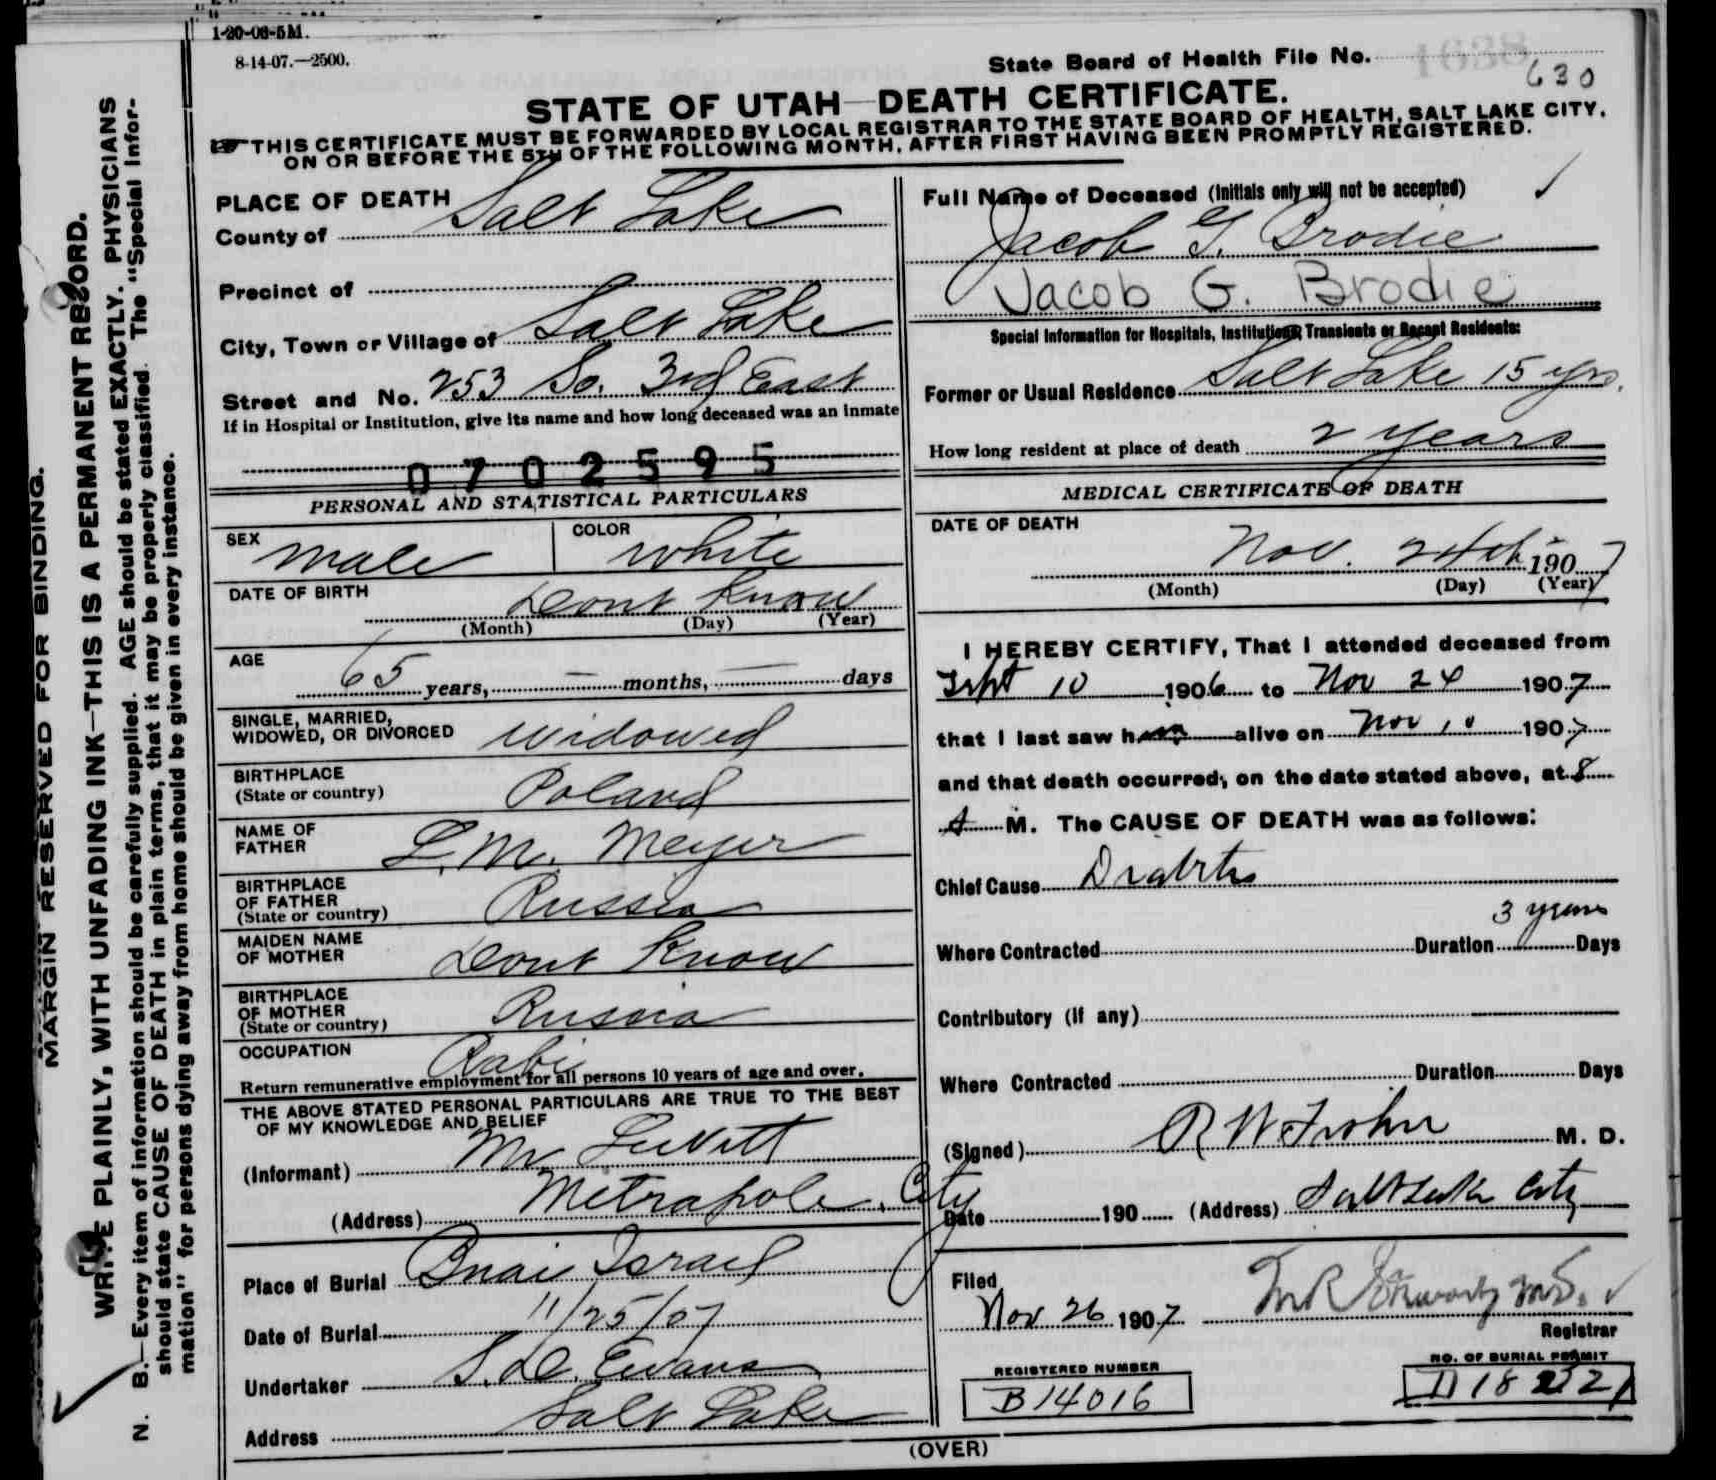 1-20-06-5M.
8-14-07.—2500.
State Board of Health File No. 1638
630
STATE OF UTAH—DEATH CERTIFICATE.
☞THIS CERTIFICATE MUST BE FORWARDED BY LOCAL REGISTRAR TO THE STATE BOARD OF HEALTH, SALT LAKE CITY,
ON OR BEFORE THE 5TH OF THE FOLLOWING MONTH, AFTER FIRST HAVING BEEN PROMPTLY REGISTERED.
MARGIN RESERVED FOR BINDING.
WRITE PLAINLY, WITH UNFADING INK—THIS IS A PERMANENT RECORD.
N. B.—Every item of information should be carefully supplied. AGE should be stated EXACTLY. PHYSICIANS
should state CAUSE OF DEATH in plain terms, that it may be properly classified. The "Special Infor-
mation" for persons dying away from home should be given in every instance.
PLACE OF DEATH
County of Salt Lake
Precinct of
City, Town or Village of Salt Lake
Street and No. 253 So. 3rd East
If in Hospital or Institution, give its name and how long deceased was an inmate
0702595
PERSONAL AND STATISTICAL PARTICULARS
SEX male COLOR white
DATE OF BIRTH Dont Know
(Month) (Day) (Year)
AGE 65 years, — months, — days
SINGLE, MARRIED,
WIDOWED, OR DIVORCED widowed
BIRTHPLACE
(State or country) Poland
NAME OF
FATHER L. M. Meyer
BIRTHPLACE
OF FATHER
(State or country) Russia
MAIDEN NAME
OF MOTHER Dont Know
BIRTHPLACE
OF MOTHER
(State or country) Russia
OCCUPATION Rabi
Return remunerative employment for all persons 10 years of age and over.
THE ABOVE STATED PERSONAL PARTICULARS ARE TRUE TO THE BEST
OF MY KNOWLEDGE AND BELIEF
(Informant) Mr Levitt
(Address) Metrapole, City
Place of Burial Bnai Israel
Date of Burial 11/25/07
Undertaker S. D. Evans
Address Salt Lake
Full Name of Deceased (Initials only will not be accepted)
Jacob G. Brodie
Jacob G. Brodie
Special Information for Hospitals, Institutions, Transients or Recent Residents:
Former or Usual Residence Salt Lake 15 yrs.
How long resident at place of death 2 years
MEDICAL CERTIFICATE OF DEATH
DATE OF DEATH
Nov. 24th 1907
(Month) (Day) (Year)
I HEREBY CERTIFY, That I attended deceased from
Sept 10 1906 to Nov 24 1907
that I last saw h alive on Nov 10 1907
and that death occurred, on the date stated above, at 8
A M. The CAUSE OF DEATH was as follows:
Chief Cause Diabetes
3 years
Where Contracted Duration Days
Contributory (If any)
Where Contracted Duration Days
(Signed) R W M. D.
Date 190 (Address) Salt Lake City
Filed
Nov 26 1907
Registrar
REGISTERED NUMBER
B14016
NO. OF BURIAL PERMIT
(OVER)